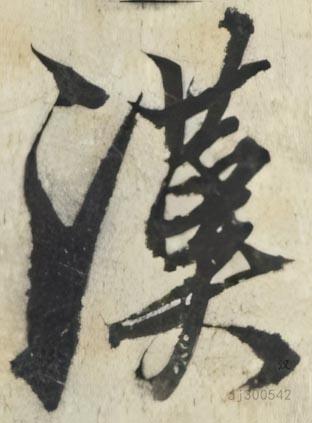 漢
汉
dj300542